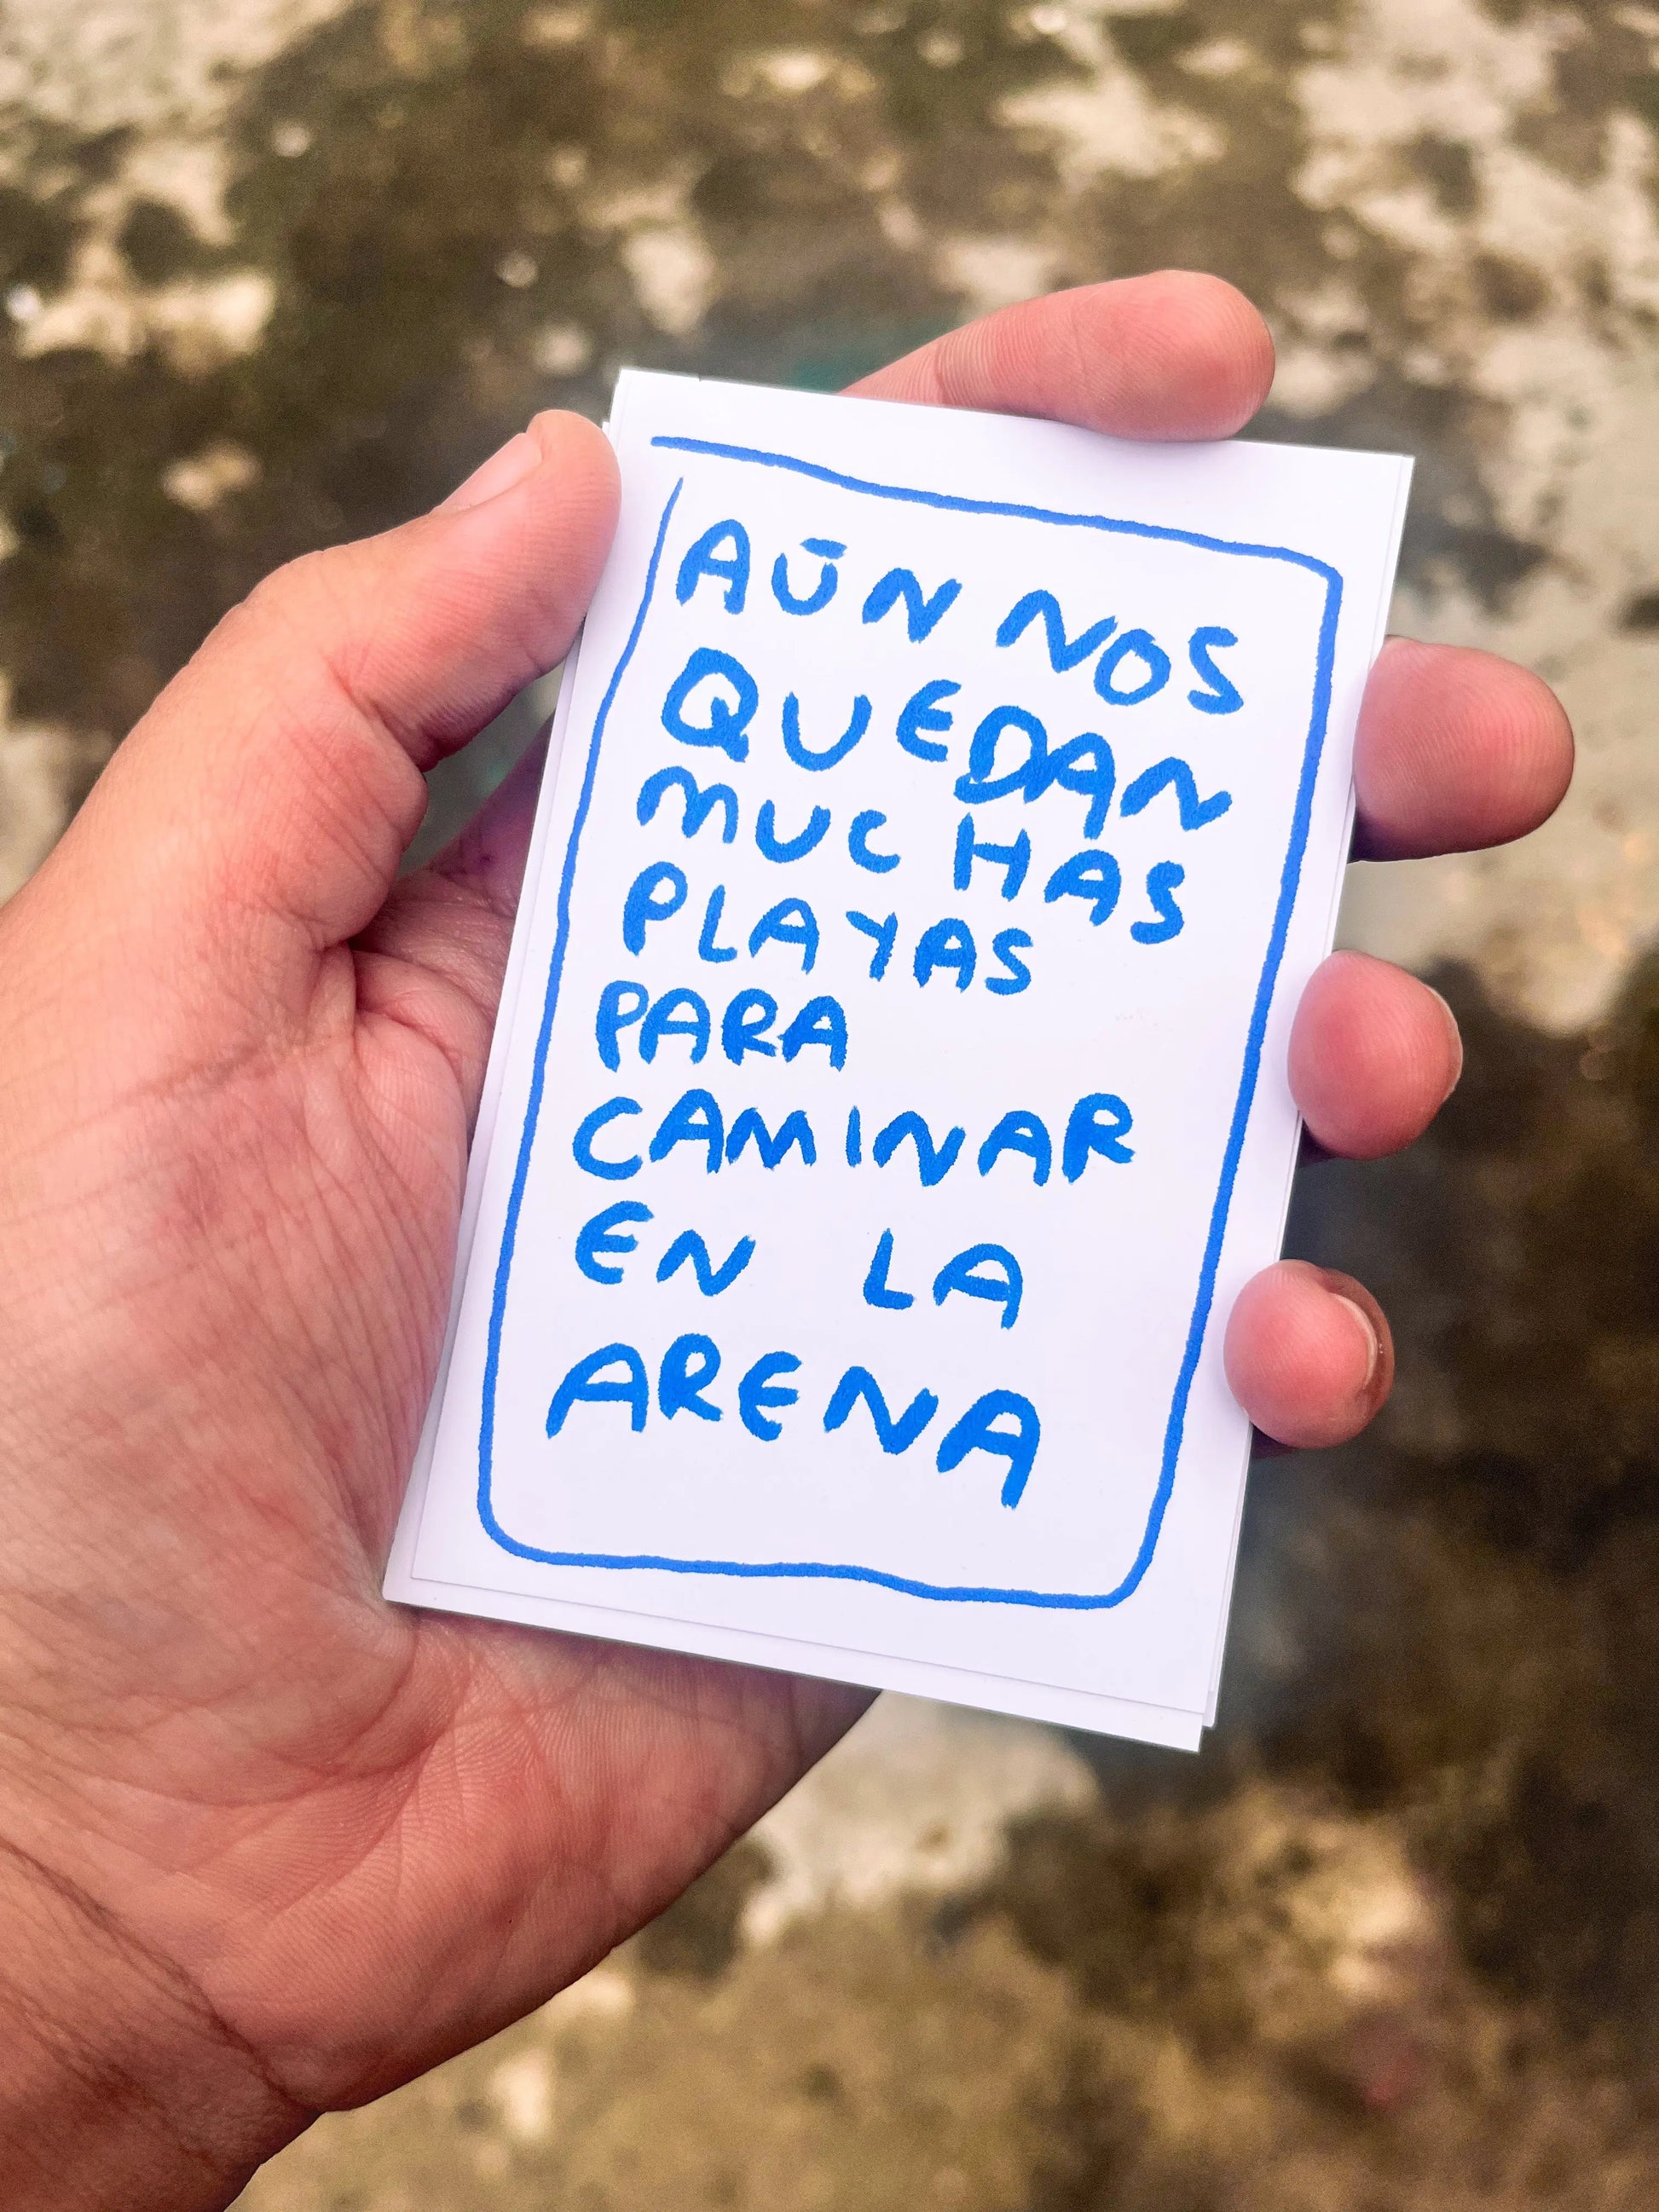 AÚN NOS
QUEDAN
MUCHAS
PLAYAS
PARA
CAMINAR
EN LA
ARENA